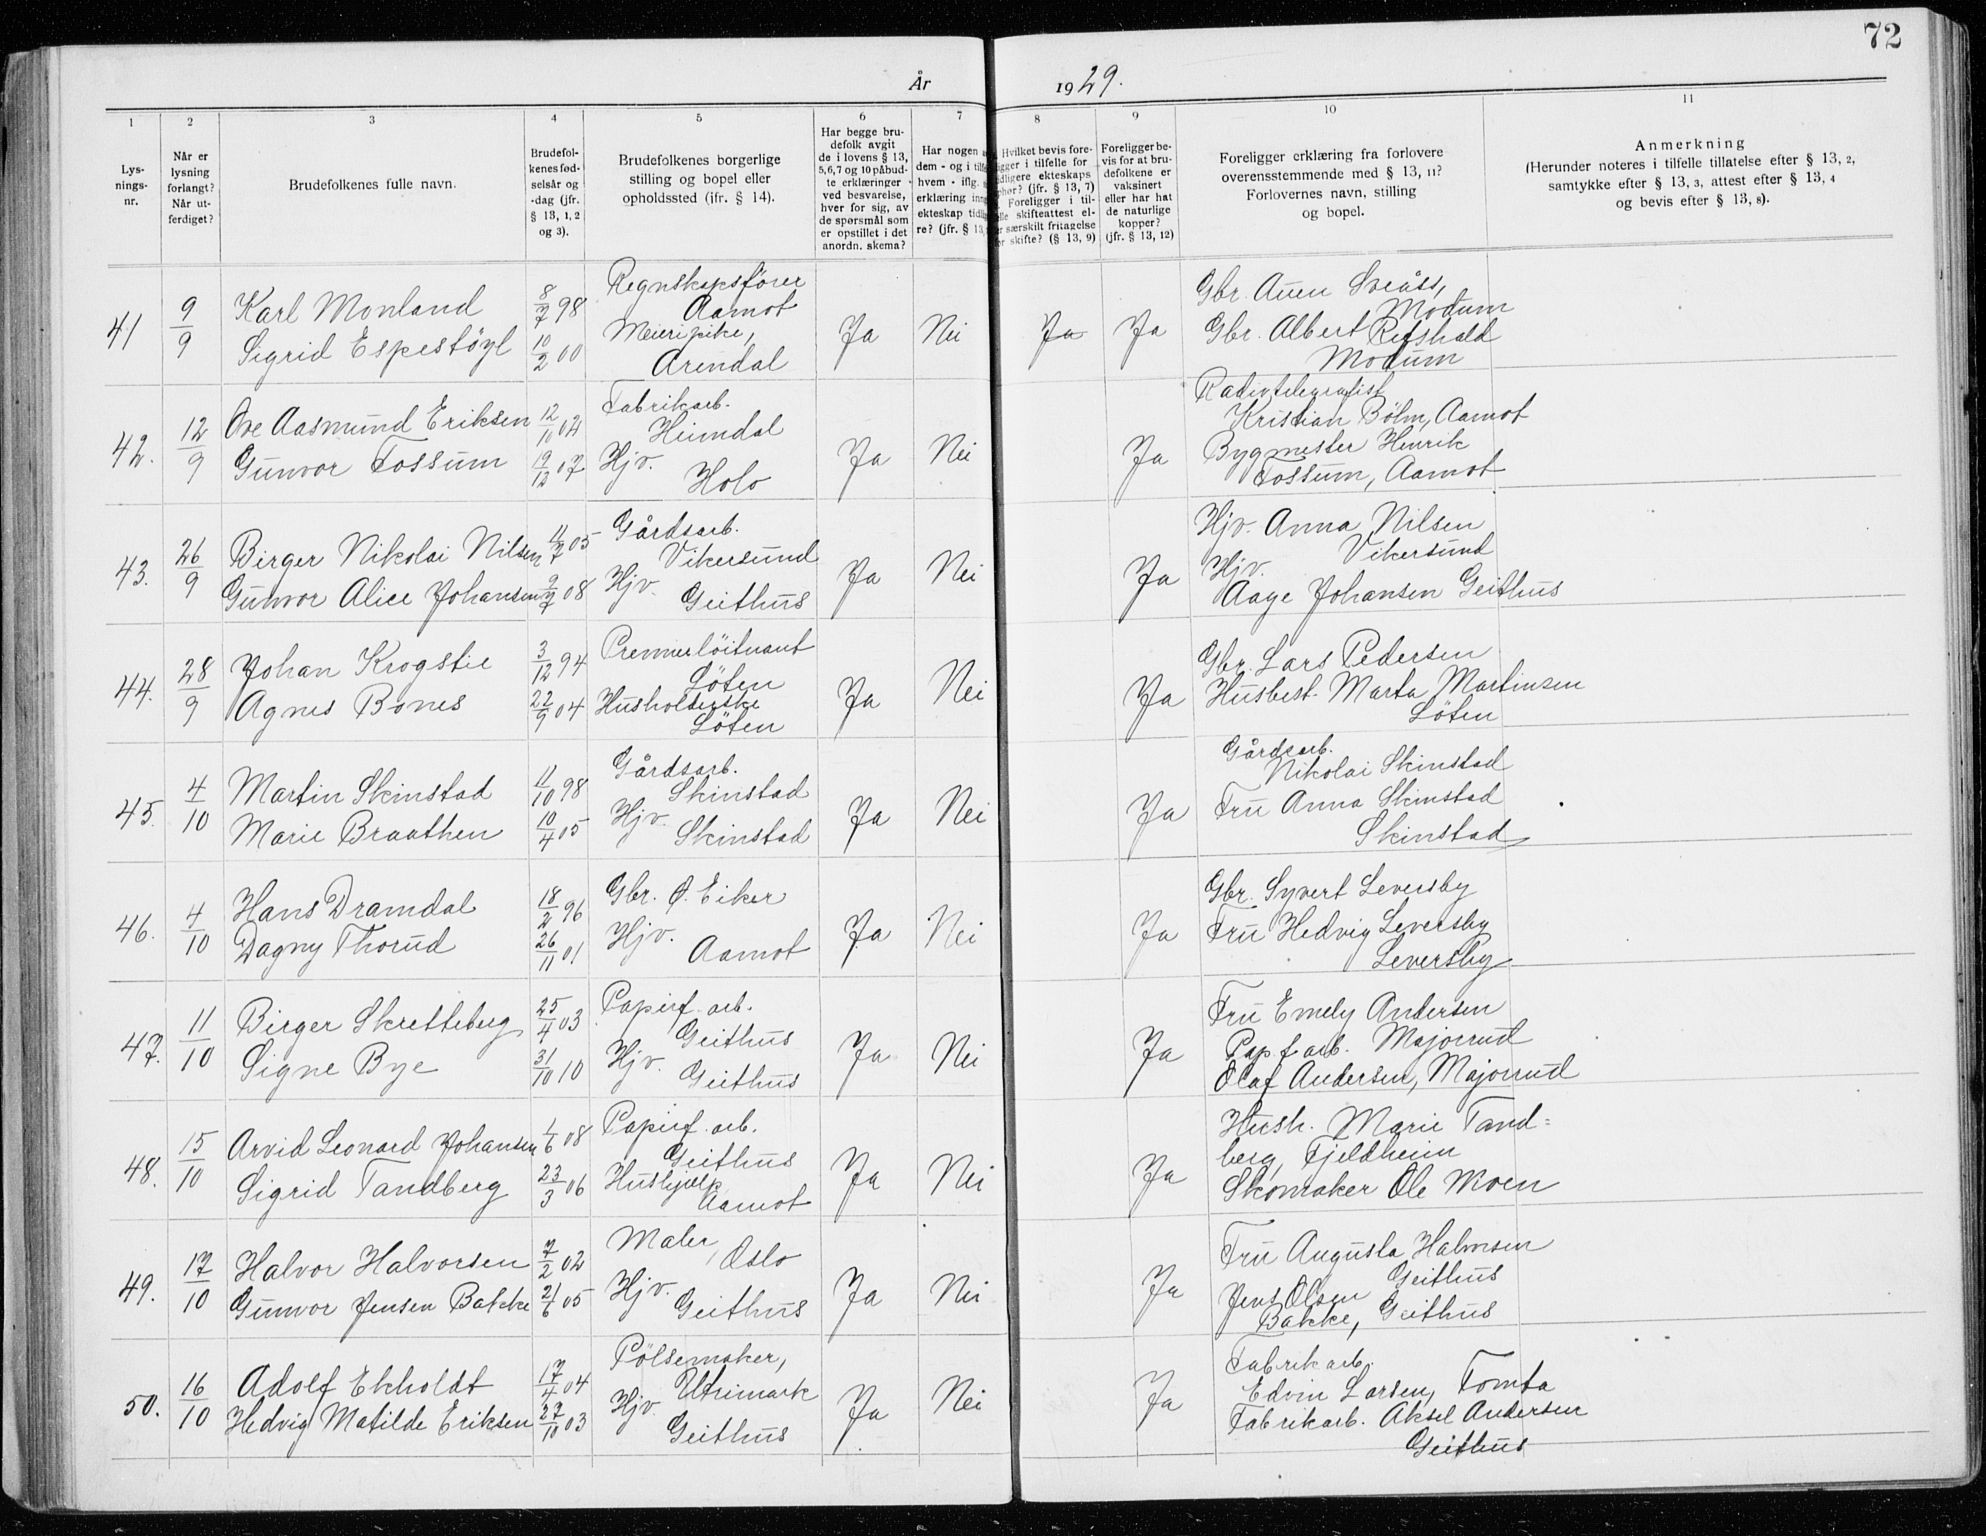 72
År 1929.
1
2
3
4
5
6
7
8
9
10
11
Lys-
nings-
nr.
Når er
lysning
forlangt?
Når ut-
ferdiget?
Brudefolkenes fulle navn.
Brudefol-
kenes fød-
selsår og
-dag (jfr.
§ 13, 1, 2
og 3).
Brudefolkenes borgerlige
stilling og bopel eller
opholdssted (jfr. § 14).
Har begge bru-
defolk avgit
de i lovens § 13,
5, 6, 7 og 10 påbud-
te erklæringer
ved besvarelse,
hver for sig, av
de spørsmål som
er opstillet i det
anordn. skema?
Har nogen
dem - og i
hvem - iflg.
erklæring
ekteskap
re? (jfr. § 13,
Hvilket bevis fore-
ligger i tilfelle for
tidligere ekteskaps
ophør? (jfr. § 13, 7)
Foreligger i til-
skifteattest el-
særskilt fritagelse
skifte? (§ 13, 9)
Foreligger be-
vis for at bru-
defolkene er
vaksinert
eller har hat
de naturlige
kopper?
(jfr. § 13, 12)
Foreligger erklæring fra forlovere
overensstemmende med § 13, 11?
Forlovernes navn, stilling
og bopel.
Anmerkning
(Herunder noteres i tilfelle tillatelse efter § 13, 2,
samtykke efter § 13, 3, attest efter § 13, 4
og bevis efter § 13, 8).
41 9/9 Karl Monland 8/7 98 Regnskapsfører
Aamot
Sigrid Espestøyl 10/2 00 Meieripike,
Arendal
Ja Nei Ja Ja
Gbr. Auen Sveåss,
Modum
Gbr. Albert Refshald
Modum
42. 12/9 Ove Aasmund Eriksen 12/10 02 Fabrikarb.
Heimdal
Gunvor Fossum 19/12 07 Hjv.
Holo
Ja Nei Ja
Radiotelegrafist
Kristian Bölm, Aamot
Bygmester Henrik
Fossum, Aamot
43. 26/9 Birger Nikolai Nilsen 11/7 05 Gårdsarb.
Vikersund
Gunvor Alice Johansen 9/7 08 Hjv.
Geithus
Ja Nei Ja
Hjv. Anna Nilsen
Vikersund
Hjv.
Aage Johansen Geithus
44. 28/9 Johan Krogstie 3/12 94 Premierløitnant
Löten
Agnes Bones 22/9 04 Husholderske
Löten
Ja Nei Ja
Gbr. Lars Pedersen
Husbest. Marta Martinsen
Löten
45. 4/10 Martin Skinstad 11/10 98 Gårdsarb.
Skinstad
Marie Braathen 10/4 05 Hjv.
Skinstad
Ja Nei Ja
Gårdsarb.
Nikolai Skinstad
Fru Anna Skinstad
Skinstad
46. 4/10 Hans Dramdal 18/2 96 Gbr. Ø. Eiker
Dagny Thorud 26/11 01 Hjv.
Aamot
Ja Nei Ja
Gbr. Syvert Leversby
Fru Hedvig Leversby
Leversby
47. 11/10 Birger Skretteberg 25/4 03 Papirf. arb.
Geithus
Signe Bye 31/10 10 Hjv.
Geithus
Ja Nei Ja
Fru Emely Andersen
Pap f. arb. Majorrud
Olaf Andersen, Majorrud
48. 15/10 Arvid Leonard Johansen 1/6 08 Papirf. arb.
Geithus
Sigrid Tandberg 23/3 06 Hushjælp
Aamot
Ja Nei Ja
Hush. Marie Tand=
berg, Fjeldheim
Skomaker Ole Moen
49. 17/10 Halvor Halvorsen 7/2 02 Maler,
Oslo
Gunvor Jensen Bakke 21/6 05 Hjv.
Geithus
Ja Nei Ja
Fru Augusta Halvorsen
Geithus
Jens Olsen
Bakke, Geithus
50. 16/10 Adolf Ekholdt 17/4 04 Pölsemaker,
Utrimark
Hedvig Matilde Eriksen 27/10 03 Hjv.
Geithus
Ja Nei Ja
Fabrikarb.
Edvin Larsen, Tomta
Fabrikarb. Aksel Andersen
Geithus